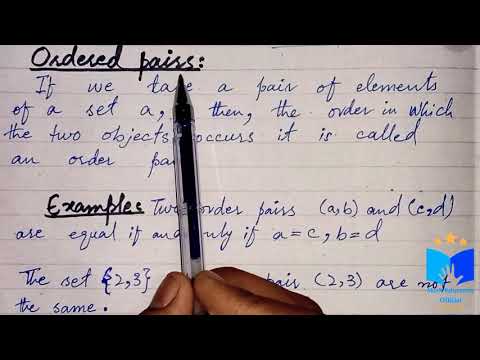 Ordered pairs:
If we take a pair of elements
of a set a, then, the order in which
the two objects occurs it is called
an order
Examples Two order pairs (a,b) and (c,d)
are equal if and only if a=c, b=d
The set {2,3} pair (2,3) are not
the same.
Official